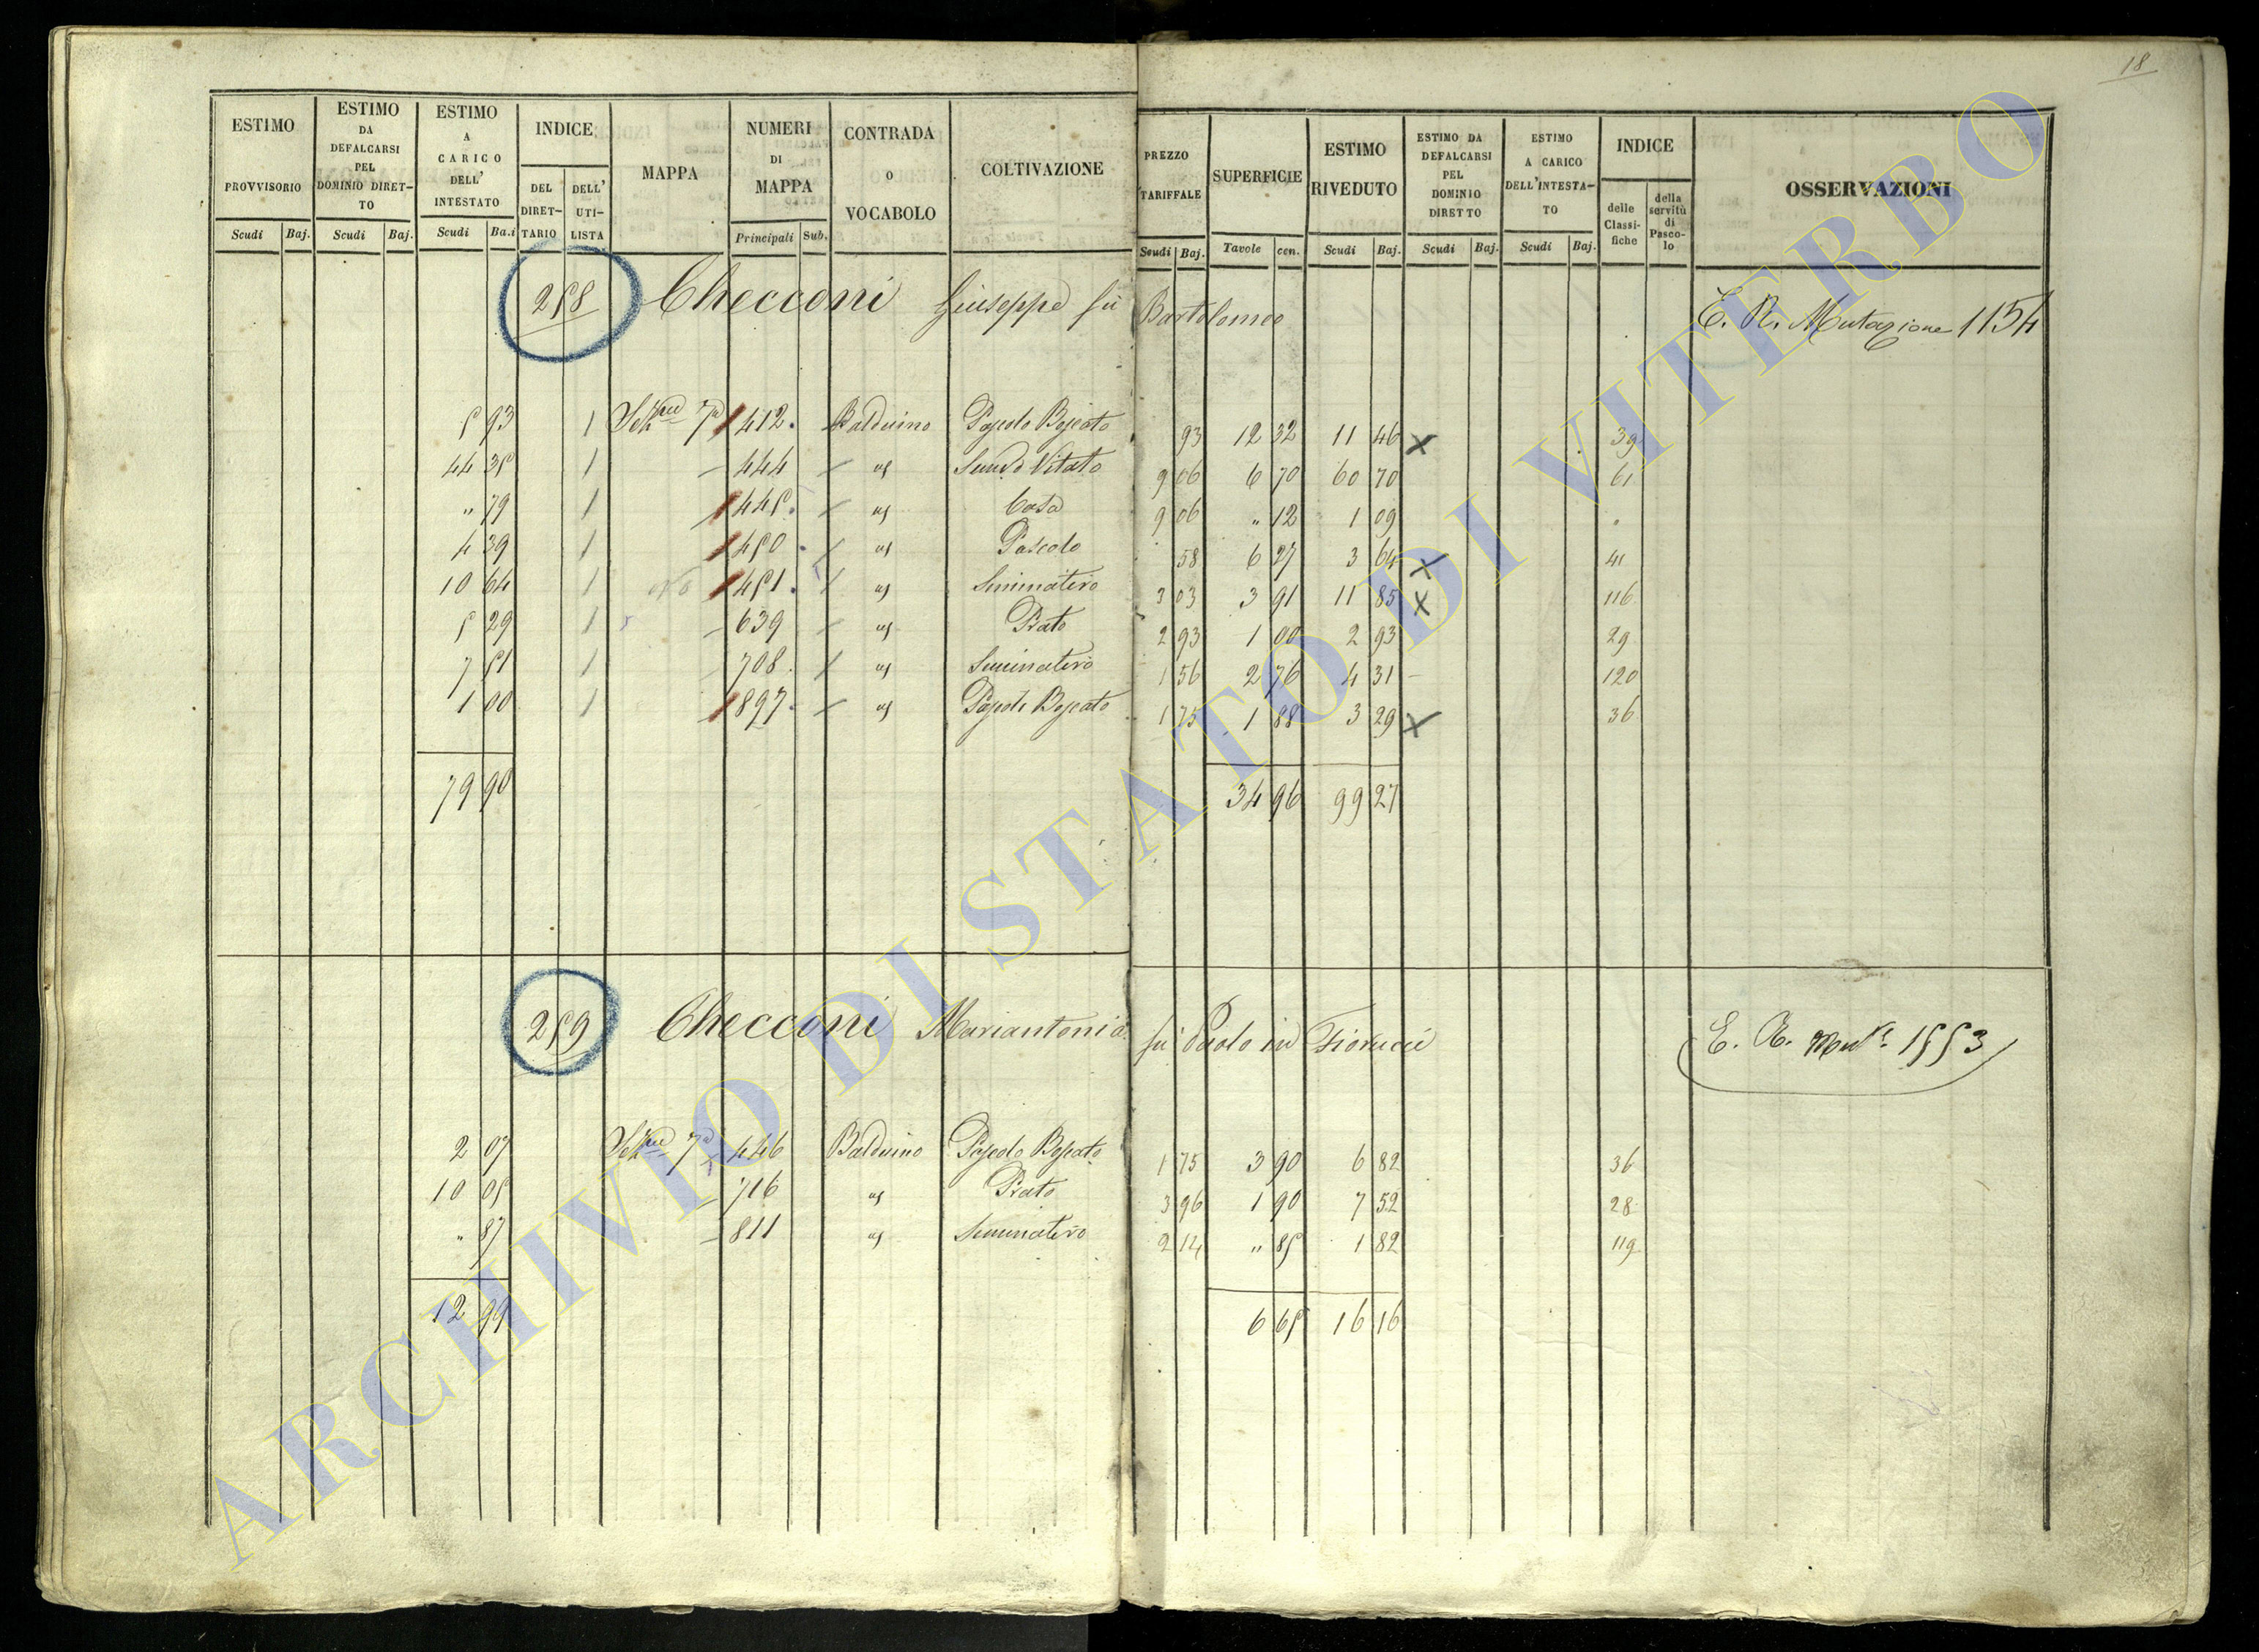 18
ESTIMO PROVVISORIO | ESTIMO DA DEFALCARSI PEL DOMINIO DIRET-TO | ESTIMO A CARICO DELL' INTESTATO | INDICE DEL DIRET-TARIO | DELL' UTI-LISTA | MAPPA | NUMERI DI MAPPA | CONTRADA o VOCABOLO | COLTIVAZIONE | PREZZO TARIFFALE | SUPERFICIE | ESTIMO RIVEDUTO | ESTIMO DA DEFALCARSI PEL DOMINIO DIRETTO | ESTIMO A CARICO DELL'INTESTA-TO | INDICE delle Classi-fiche | della servitù di Pasco-lo | OSSERVAZIONI
Scudi | Baj. | Scudi | Baj. | Scudi | Ba.i | Principali | Sub. | Scudi | Baj. | Tavole | cen. | Scudi | Baj. | Scudi | Baj. | Scudi | Baj.
258 Checconi Giuseppe fu Bartolomeo E. R. Mutazione 1154
5 93 1 7a 412 Balduino Pascolo Boscato 93 12 32 11 46 x 39
44 35 1 444 Vitato 9 06 6 70 60 70 61
" 79 1 445 Casa 9 06 " 12 1 09
4 39 1 450 Pascolo 58 6 27 3 64 x 41
10 64 1 451 Seminativo 3 03 3 91 11 85 x 116
5 29 1 639 Prato 2 93 1 00 2 93 29
7 51 1 708 Seminativo 1 56 2 76 4 31 120
1 00 1 897 Pascolo Boscato 1 75 1 88 3 29 x 36
79 90 34 96 99 27
259 Checconi Mariantonia fu Paolo in Fiorucci E. R. 1553
2 07 7a 446 Balduino Pascolo Boscato 1 75 3 90 6 82 36
10 05 716 Prato 3 96 1 90 7 52 28
" 87 811 Seminativo 2 14 " 85 1 82 119
12 99 6 65 16 16
ARCHIVIO DI STATO DI VITERBO